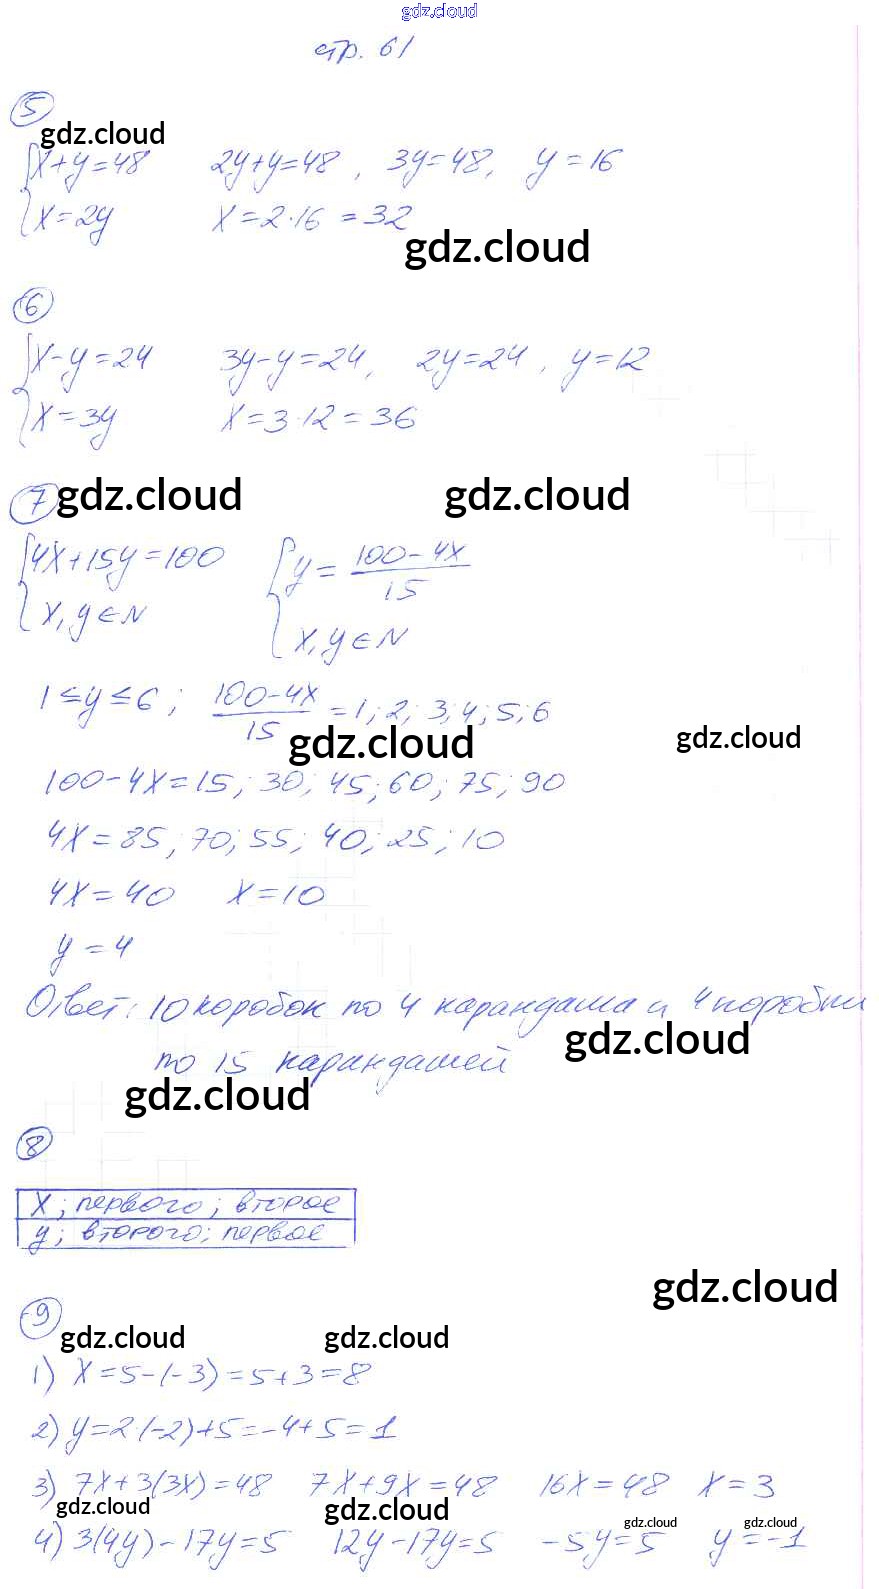 gdz.cloud
стр. 61
5
gdz.cloud
{x+y=48 2y+y=48, 3y=48, y=16
x=2y x=2·16=32
gdz.cloud
6
{x-y=24 3y-y=24, 2y=24, y=12
x=3y x=3·12=36
7 gdz.cloud gdz.cloud
{4x+15y=100 {y=(100-4x)/15
x,y∈N x,y∈N
1≤y≤6; (100-4x)/15=1;2;3;4;5;6
gdz.cloud gdz.cloud
100-4x=15;30;45;60;75;90
4x=85;70;55;40;25;10
4x=40 x=10
y=4
Ответ: 10 коробок по 4 карандаша и 4 коробки
gdz.cloud
по 15 карандашей
gdz.cloud
8
x; первого; второе
y; второго; первое
gdz.cloud
9
gdz.cloud gdz.cloud
1) x=5-(-3)=5+3=8
2) y=2·(-2)+5=-4+5=1
3) 7x+3(3x)=48 7x+9x=48 16x=48 x=3
gdz.cloud gdz.cloud gdz.cloud gdz.cloud
4) 3(4y)-17y=5 12y-17y=5 -5y=5 y=-1